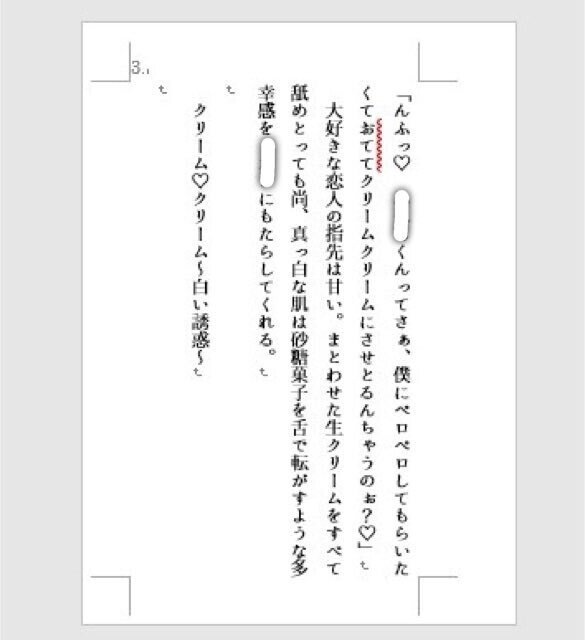 3.
「んふっ♡ くんってさぁ、僕にペロペロしてもらいた
くておててクリームクリームにさせとるんちゃうのぉ？♡」
大好きな恋人の指先は甘い。まとわせた生クリームをすべて
舐めとっても尚、真っ白な肌は砂糖菓子を舌で転がすような多
幸感を にもたらしてくれる。
クリーム♡クリーム～白い誘惑～